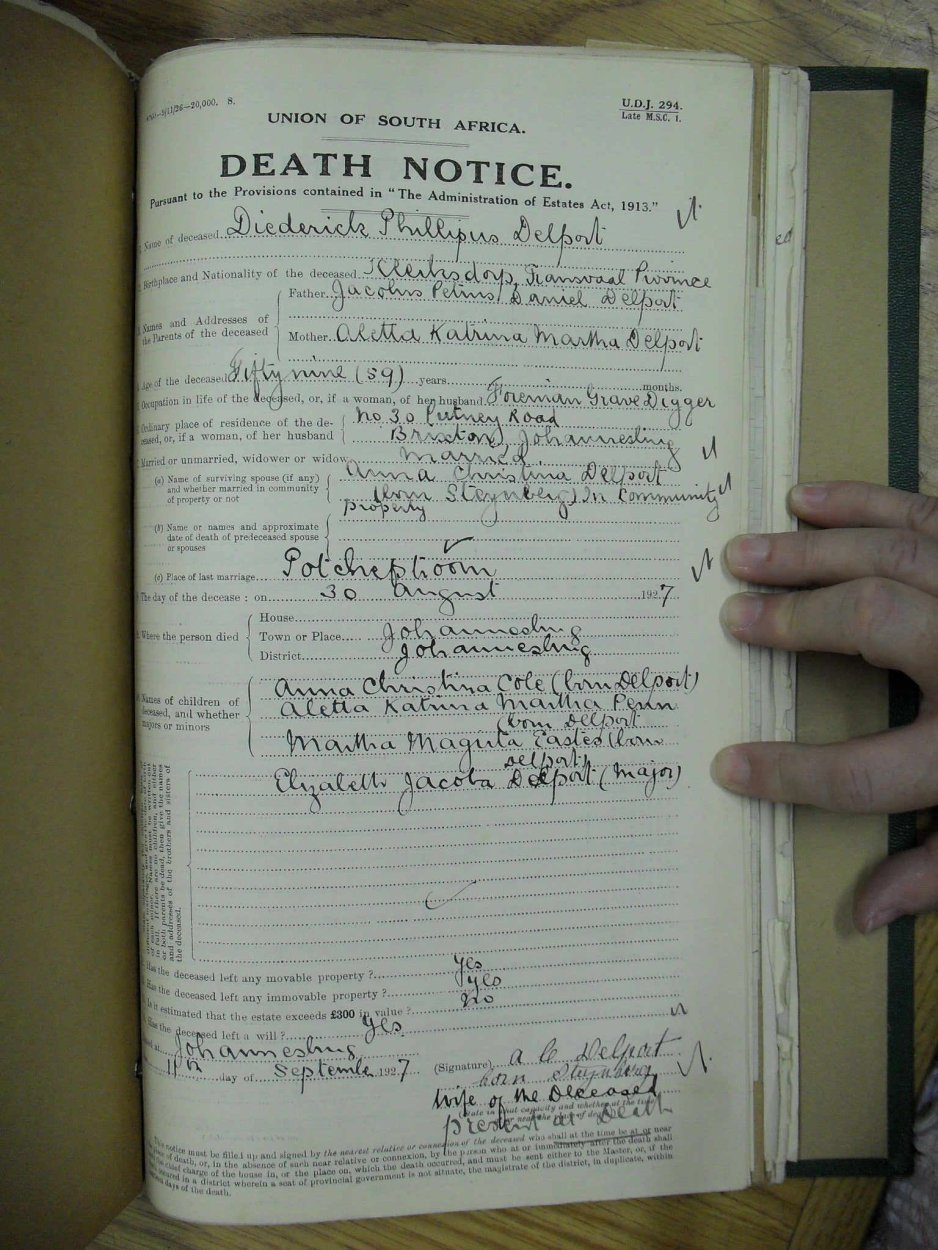 —5/11/26—20,000. S.
U.D.J. 294.
Late M.S.C. 1.
UNION OF SOUTH AFRICA.
DEATH NOTICE.
Pursuant to the Provisions contained in "The Administration of Estates Act, 1913."
Name of deceased Diederick Phillipus Delport
Birthplace and Nationality of the deceased Klerksdorp, Transvaal Province
Names and Addresses of the Parents of the deceased
Father Jacobus Petrus Daniel Delport
Mother Aletta Katrina Martha Delport
Age of the deceased Fifty nine (59) years months.
Occupation in life of the deceased, or, if a woman, of her husband Foreman Grave Digger
Ordinary place of residence of the de-
ceased, or, if a woman, of her husband
No 30 Putney Road
Brixton, Johannesburg
Married or unmarried, widower or widow Married
(a) Name of surviving spouse (if any)
and whether married in community
of property or not
Anna Christina Delport
(born Steynberg) In Community
property
(b) Name or names and approximate
date of death of predeceased spouse
or spouses
(c) Place of last marriage Potchefstroom
The day of the decease: on 30 August 1927
Where the person died
House
Town or Place Johannesburg
District Johannesburg
Names of children of
deceased, and whether
majors or minors
Anna Christina Cole (born Delport)
Aletta Katrina Martha Penn
(born Delport
Martha Magrita Eastes (born
Delport)
Elizabeth Jacoba Delport (Major)
or both parents be dead, then give the names
and addresses of the brothers and sisters of
the deceased.
Has the deceased left any movable property? Yes
Has the deceased left any immovable property? Yes
Is it estimated that the estate exceeds £300 in value? No
Has the deceased left a will? Yes
at Johannesburg
11th day of September 1927
(Signature) A C Delport
born Steynberg
Wife of the Deceased
present at Death
This notice must be filled up and signed by the nearest relative or connexion of the deceased who shall at the time be at or near
place of death, or, in the absence of such near relative or connexion, by the person who at or immediately after the death shall
the chief charge of the house in, or the place on, which the death occurred, and must be sent either to the Master, or, if the
occurred in a district wherein a seat of provincial government is not situate, the magistrate of the district, in duplicate, within
days of the death.